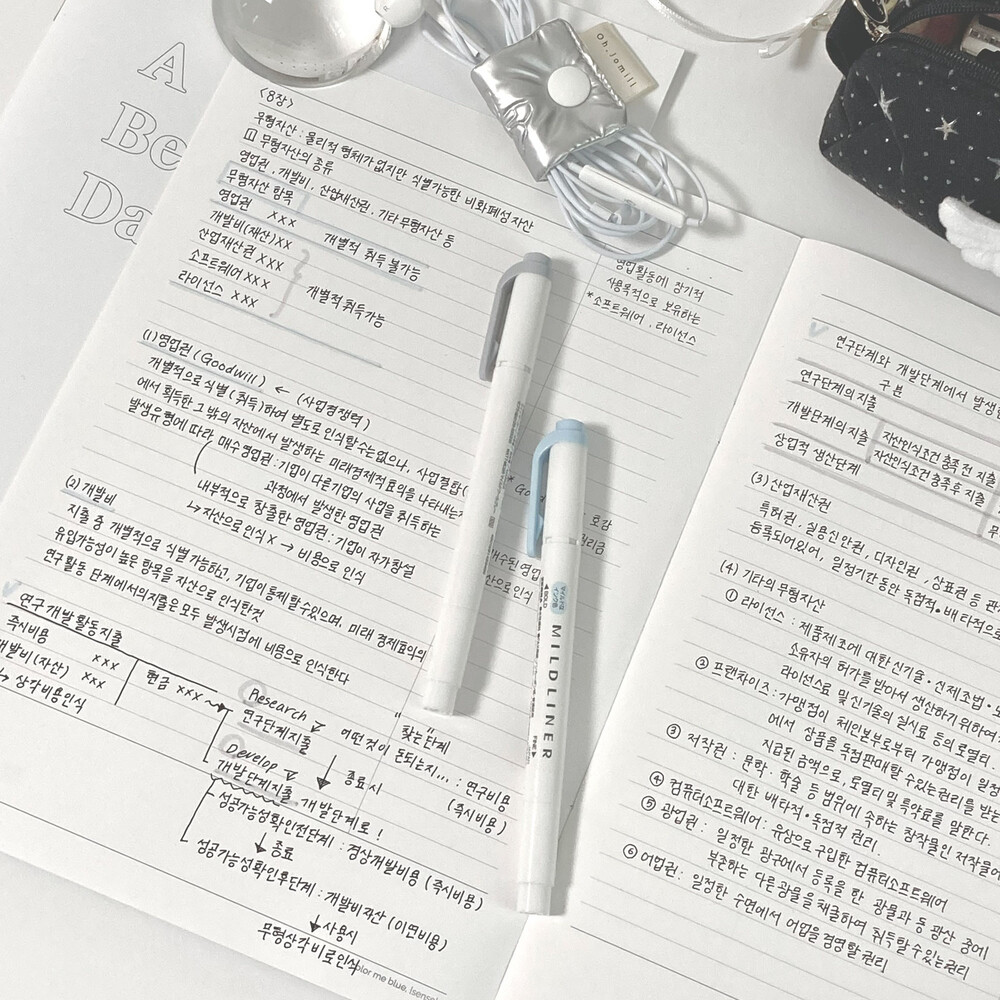 A
Be
Da
Oh, Jomill
<8장>
무형자산 : 물리적 형체가 없지만 식별가능한 비화폐성자산
1 무형자산의 종류
영업권, 개발비, 산업재산권, 기타무형자산 등
무형자산 항목
영업권 XXX 개별적 취득 불가능
개발비(재산)XX
산업재산권 XXX
소프트웨어 XXX 개별적 취득가능
라이선스 XXX
영업활동에 장기적
사용목적으로 보유하는
*소프트웨어, 라이선스
(1) 영업권(Goodwill) ← (사업경쟁력)
개별적으로 식별(취득)하여 별도로 인식할수는없으나, 사업결합
에서 획득한 그밖의 자산에서 발생하는 미래경제적효익을 나타내는
발생유형에 따라, 매수영업권 : 기업이 다른기업의 사업을 취득하는
과정에서 발생한 영업권
내부적으로 창출한 영업권 : 기업이 자가창설
↳ 자산으로 인식 X → 비용으로 인식
(2) 개발비
지출 중 개별적으로 식별 가능하고, 기업이 통제할 수 있으며, 미래 경제효익의
유입가능성이 높은 항목을 자산으로 인식한것
연구활동 단계에서의 지출은 모두 발생시점에 비용으로 인식한다
연구개발활동지출
즉시비용 XXX 현금 XXX
개발비(자산) XXX
↳ 상각비용인식
Research
연구단계지출 어떤것이 돈되는지... : 연구비용
"찾는단계"
(즉시비용)
종료시
Develop
개발단계지출 개발단계로!
성공가능성확인전단계 : 경상개발비용 (즉시비용)
종료
성공가능성확인후단계 : 개발비자산 (이연비용)
사용시
무형상각비로인식
olor me blue.
MILDLINER
연구단계와 개발단계에서 발생한
구분
연구단계의 지출
개발단계의 지출 자산인식조건 충족 전 지출
자산인식조건 충족후 지출
상업적 생산단계
(3) 산업재산권
특허권, 실용신안권, 디자인권, 상표권 등 관
등록되어있어, 일정기간동안 독점적·배타적으로
(4) 기타의 무형자산
① 라이선스 : 제품제조에 대한 신기술·신제조법·
소유자의 허가를 받아서 생산하기 위하여
라이선스료 및 신기술의 실시료 등의 로열티.
② 프랜차이즈 : 가맹점이 체인본부로부터 가맹점이 일정
에서 상품을 독점판매할 수 있는 권리를 받는
지급된 금액으로, 로열티 및 특약료를 말한다.
③ 저작권 : 문학·학술 등 범위에 속하는 창작물인 저작물에
대한 배타적·독점적 권리.
④ 컴퓨터소프트웨어 : 유상으로 구입한 컴퓨터소프트웨어
⑤ 광업권 : 일정한 광구에서 등록을 한 광물과 동 광산 중에
부존하는 다른광물을 채굴하여 취득할 수 있는권리
⑥ 어업권 : 일정한 수면에서 어업을 경영할 권리